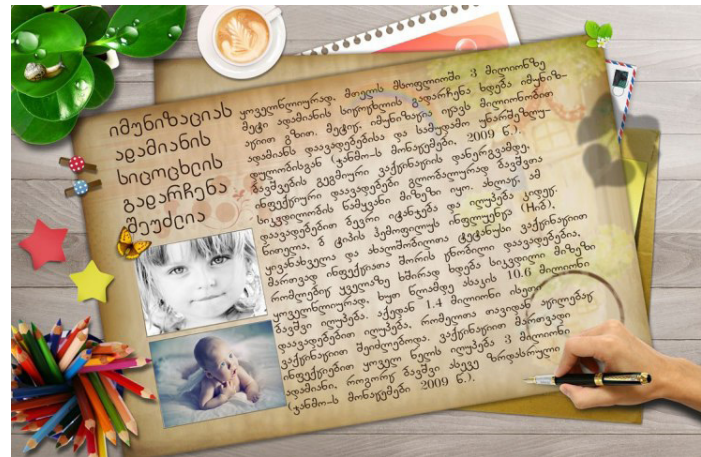 იმუნიზაციას
ადამიანის
სიცოცხლის
გადარჩენა
შეუძლია
ყოველწლიურად, მთელს მსოფლიოში 3 მილიონზე
მეტი ადამიანის სიცოცხლის გადარჩენა ხდება იმუნიზ-
აციით გზით. მეტიც, იმუნიზაცია იცავს მილიონობით
ადამიანს დაავადებებისა და სამუდამო უნარშეზღუ-
დულობისგან (ჯანმო-ს მონაცემები, 2009 წ.).
ბავშვების გეგმიური ვაქცინაციის დანერგვამდე,
ინფექციური დაავადებები გლობალურად ბავშვთა
სიკვდილობის წამყვანი მიზეზი იყო. ახლაც, ამ
დაავადებებით ბევრი იტანჯება და იღუპება კიდეც.
წითელა, ბ ტიპის ჰემოფილუს ინფლუენცა (Hiბ),
ყივანახველა და ახალშობილთა ტეტანუსი ვაქცინაციით
მართვად ინფექციათა შორის ცნობილი დაავადებებია,
რომლებიც ყველაზე ხშირად ხდება სიკვდილი მიზეზი
ყოველწლიურად, ხუთ წლამდე ასაკის 10.6 მილიონი
ბავშვი იღუპება. აქედან 1.4 მილიონი ისეთი
დაავადებებით იღუპება, რომელთა თავიდან აცილებაც
ვაქცინაციით შეიძლებოდა. ვაქცინაციით მართვადი
ინფექციებით ყოველ წელს იღუპება 3 მილიონი
ადამიანი, როგორც ბავშვი ასევე ზრდასრული
(ჯანმო-ს მონაცემები 2009 წ.).